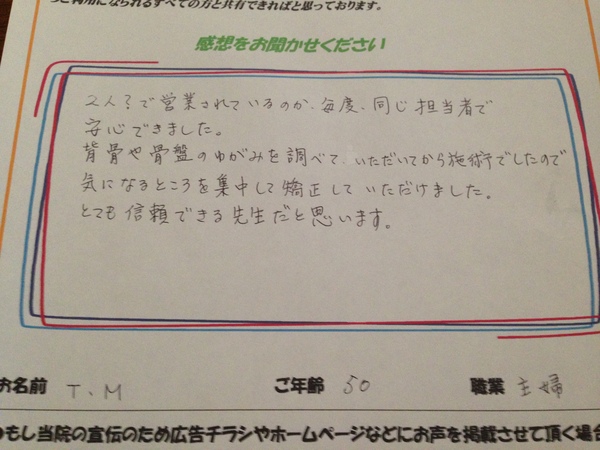 ご利用になられるすべての方と共有できればと思っております。
感想をお聞かせください
2人?で営業されているのか、毎度、同じ担当者で
安心できました。
背骨や骨盤のゆがみを調べて、いただいてから施術でしたので
気になるところを集中して矯正していただけました。
とても信頼できる先生だと思います。
お名前 T.M ご年齢 50 職業 主婦
もし当院の宣伝のため広告チラシやホームページなどにお声を掲載させて頂く場合